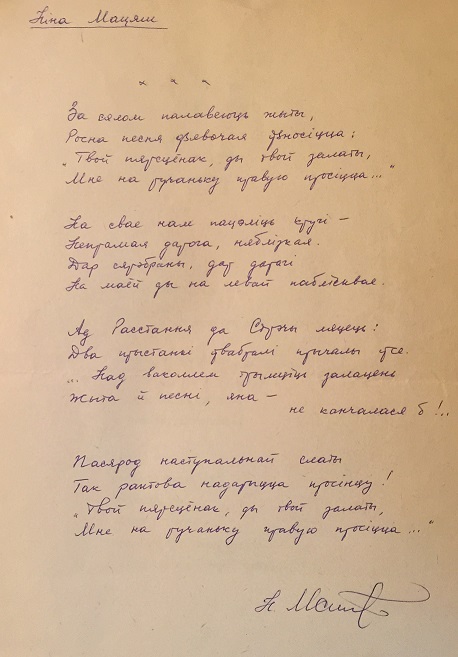 Ніна Мацяш
х х х
За сялом палавеюць жыты,
Росна песня дзявочая ўзносіцца:
"Твой пярсцёнак, ды твой залаты,
Мне на ручаньку правую просіцца..."
На свае нам пацэліць кругі –
Непрамая дарога, няблізкая.
Дар сярэбраны, дар дарагі
На маёй ды на левай паблісквае.
Ад Расстання да Стрэчы ляцець:
Два прыстанкі ўвабралі прычалы ўсе.
... Над ваколлем трымціць залацень
Жыта й песні, яна –
не канчалася б!..
Пасярод наступальнай слаты
Так раптова надарыцца просінцу!
"Твой пярсцёнак, ды твой залаты,
Мне на ручаньку правую просіцца..."
Н. Мацяш